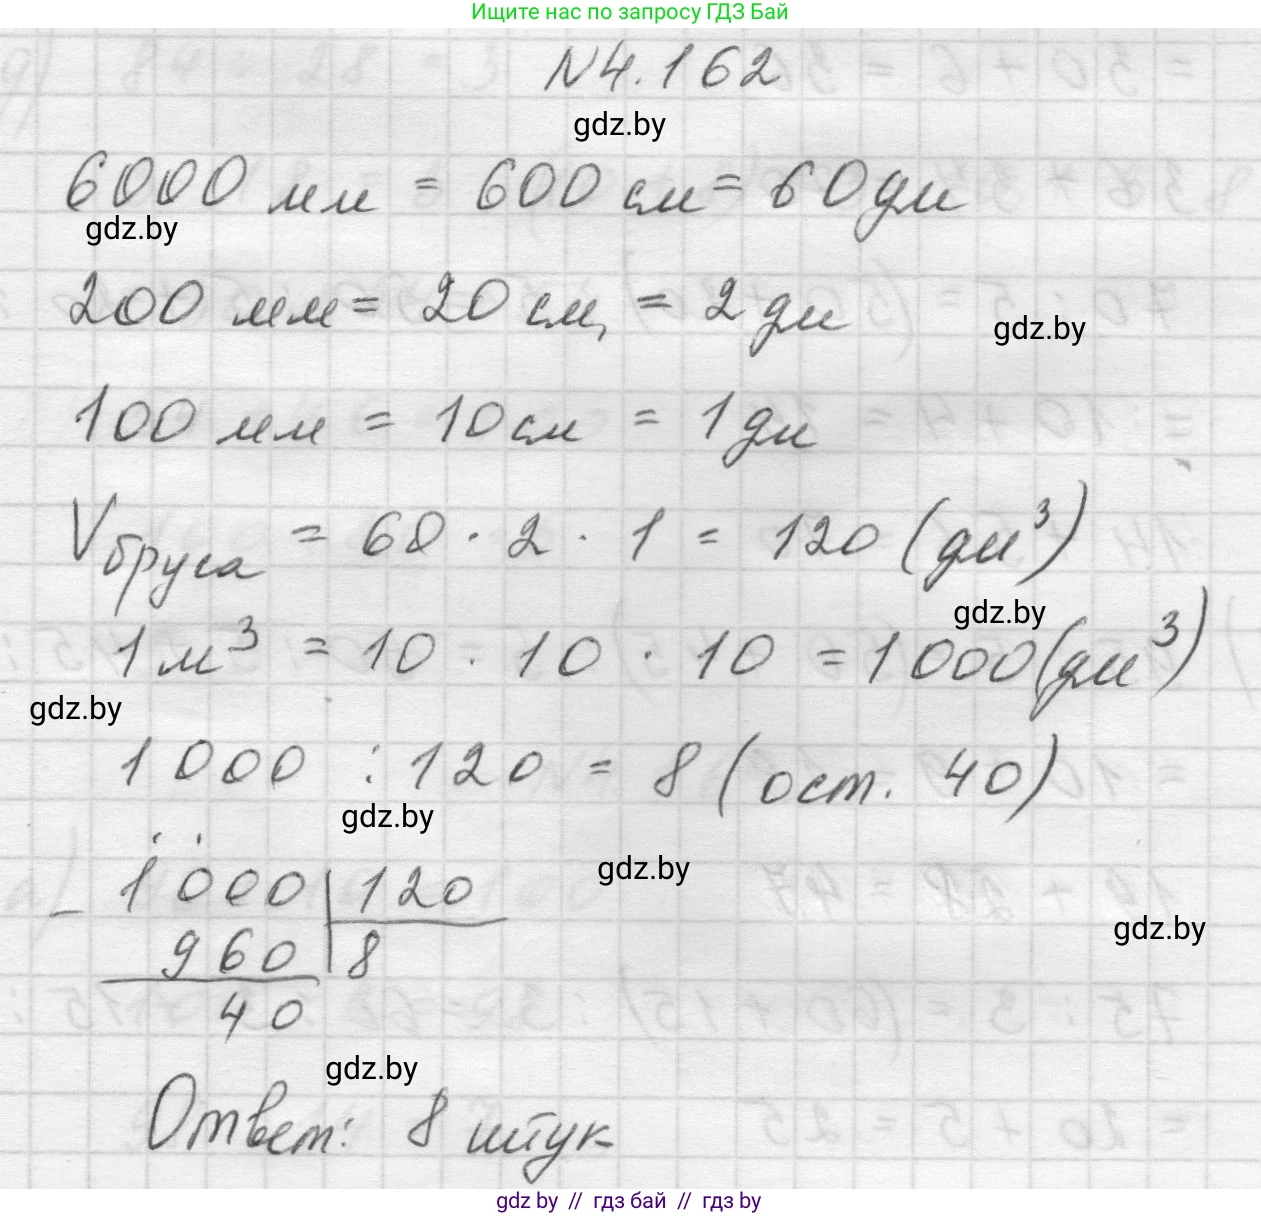 Ищите нас по запросу ГДЗ Бай
N4.162
gdz.by
6000 мм = 600 см = 60 дм
gdz.by
200 мм = 20 см, = 2 дм
gdz.by
100 мм = 10 см = 1 дм
Vбруса = 60 · 2 · 1 = 120 (дм³)
gdz.by
1 м³ = 10 · 10 · 10 = 1000 (дм³)
gdz.by
1000 : 120 = 8 (ост. 40)
gdz.by
gdz.by
1000 | 120
gdz.by
- 960 | 8
40
gdz.by
Ответ: 8 штук
gdz.by // гдз бай // гдз by